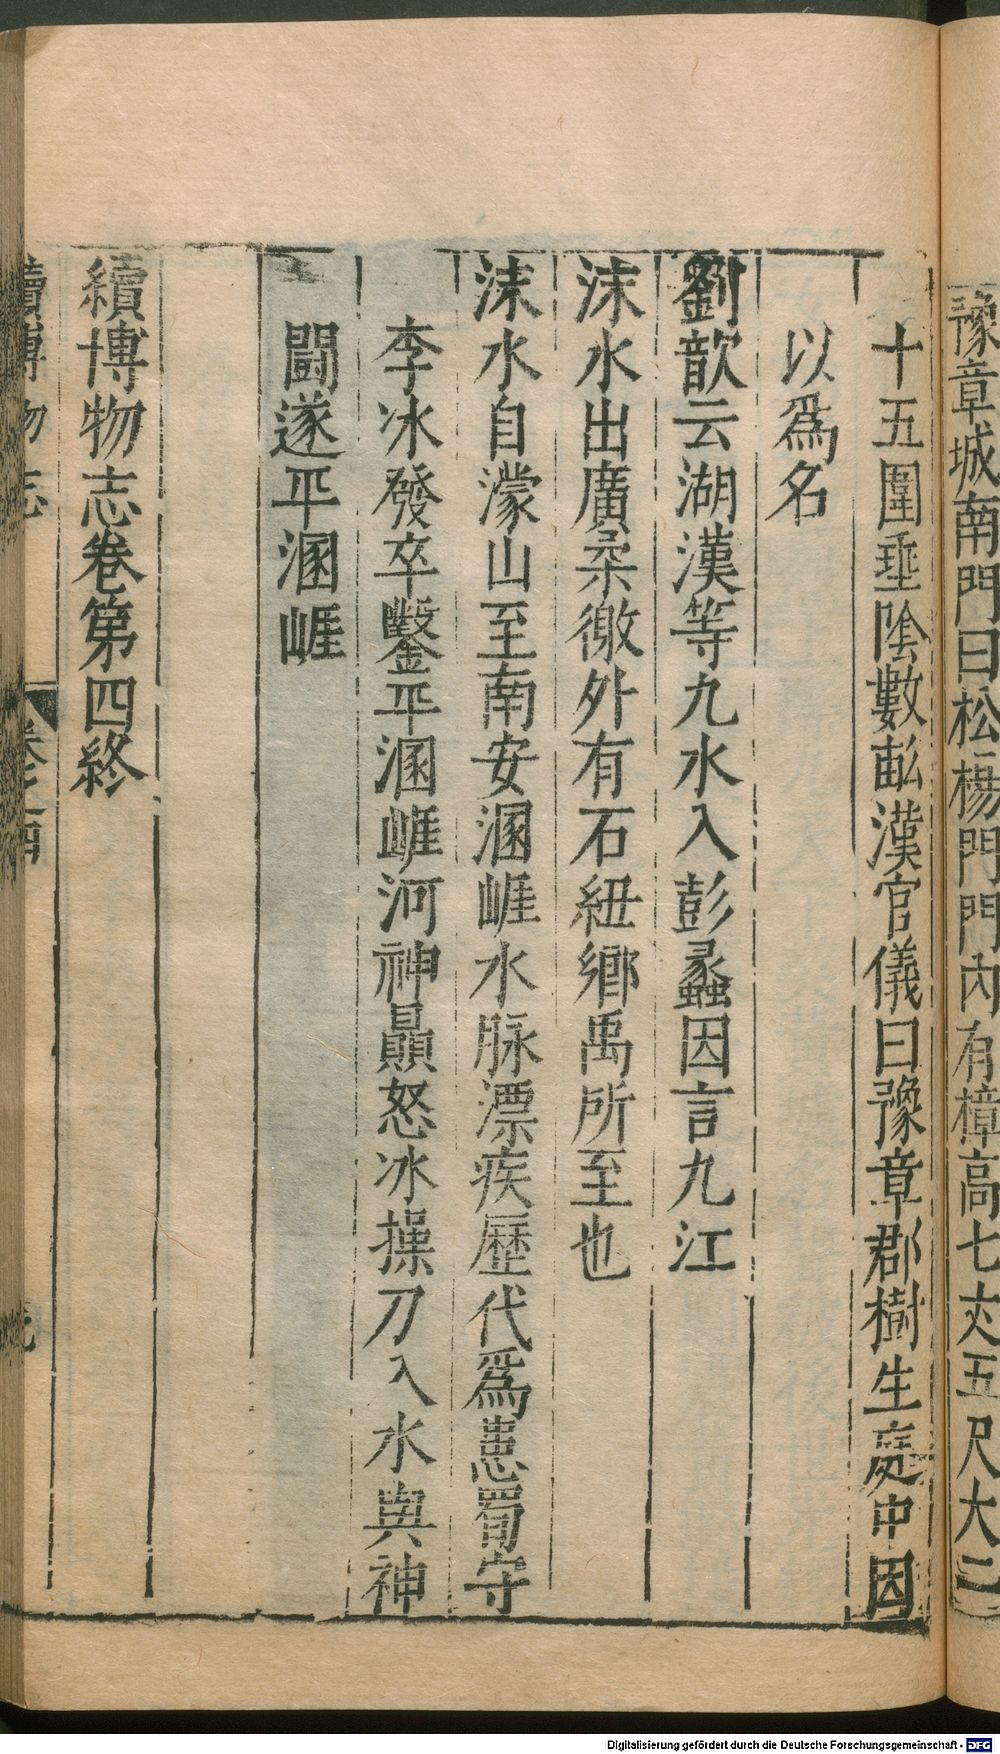 豫章城南門曰松楊門門內有樟高七丈五尺大二
十五圍垂陰數畝漢官儀曰豫章郡樹生庭中因
以爲名
劉歆云湖漢等九水入彭蠡因言九江
沫水出廣柔徼外有石紐鄉禹所至也
沫水自濛山至南安溷崕水脉漂疾歷代爲患蜀守
李冰發卒鑿平溷崕河神贔怒冰操刀入水與神
鬬遂平溷崕
續博物志卷第四終
續博物志 卷之四
Digitalisierung gefördert durch die Deutsche Forschungsgemeinschaft - DFG